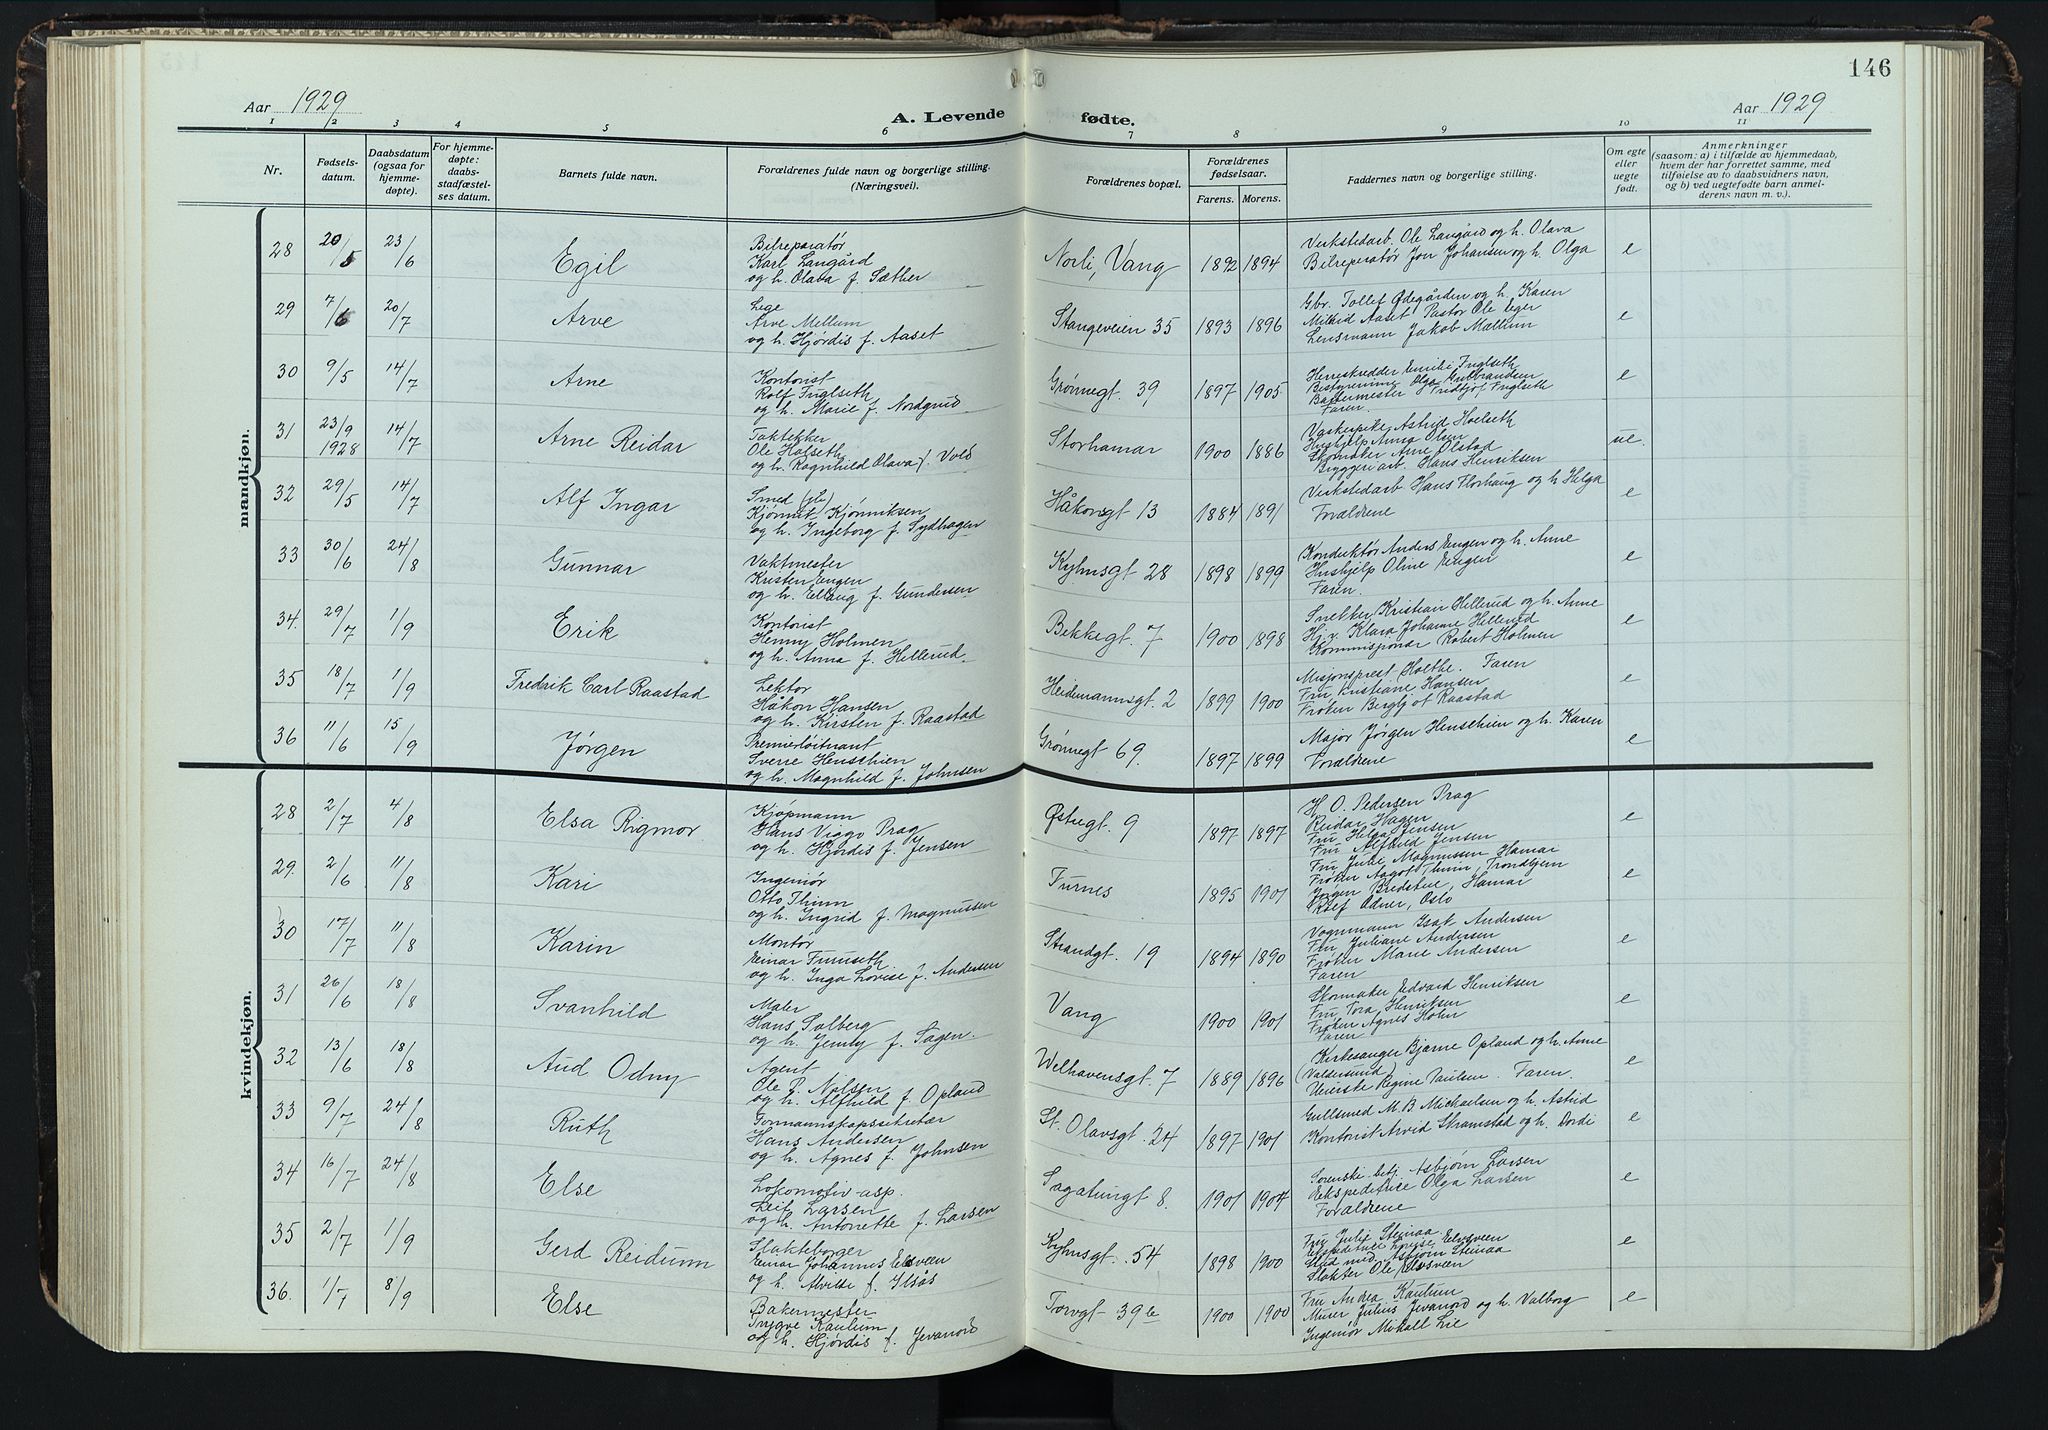 146
Aar 1929
A. Levende fødte.
Aar 1929
1 2 3 4 5 6 7 8 9 10 11
Nr.
Fødsels-
datum.
Daabsdatum
(ogsaa for
hjemme-
døpte).
For hjemme-
døpte:
daabs-
stadfæstel-
ses datum.
Barnets fulde navn.
Forældrenes fulde navn og borgerlige stilling.
(Næringsvei).
Forældrenes bopæl.
Forældrenes
fødselsaar.
Farens. Morens.
Faddernes navn og borgerlige stilling.
Om egte
eller
uegte
født.
Anmerkninger
(saasom: a) i tilfælde av hjemmedaab,
hvem der har forrettet samme, med
tilføielse av to daabsvidners navn,
og b) ved uegtefødte barn anmel-
derens navn m. v.).
mandkjøn.
28 20/5 23/6 Egil
Bilreparatør
Karl Langård
og h. Olava f. Sæther
Norli, Vang 1892 1894
Verkstedarb. Ole Langård og h. Olava
Bilreparatør Jon Johansen og h. Olga
e
29 7/6 20/7 Arve
Lege
Arve Mellum
og h. Hjørdis f. Aaset
Stangeveien 35 1893 1896
Gbr. Tollef Ødegården og h. Karen
Aaset Pastor Ole
Lensmann Jakob Mællum
e
30 9/5 14/7 Arne
Kontorist
Rolf Fuglseth
og h. Marie f. Nordgrud
Grønnegt. 39 1897 1905
Herreskredder Emilie Fuglseth
Bestyrerinne Olga Gulbrandsen
Bakermester Fridtjof Fuglseth
Faren.
e
31 23/9 1928 14/7 Arne Reidar
Taktekker
Ole Halseth
og h. Ragnhild Olava f. Vold
Storhamar 1900 1886
Vaskepike Astrid Hoelseth
Hushjelp Anna Olsen
Skomaker Arne Ølstad
Bryggeriarb. Hans Henriksen
ue.
32 29/5 14/7 Alf Ingar
Smed
Kjønnik Kjønniksen
og h. Ingeborg f. Sydhagen
Håkonsgt 13 1884 1891
Verkstedarb. Hans Florhaug og h Helga
Forældrene
e
33 30/6 24/8 Gunnar
Vaktmester
Kristen Engen
og h. Ellaug f. Gundersen
Kyhnsgt 28 1898 1899
Konduktør Anders Engen og h. Anne
Hushjelp Oline Engen
Faren.
e
34. 29/7 1/9 Erik
Kontorist
Henny Holmen
og h. Anna f. Hellerud
Bekkegt. 7 1900 1898
Snekker Kristian Hellerud og h. Anne
H.v. Klara Johanne Hellerud
Robert Holmen
e
35 18/7 1/9 Fredrik Carl Raastad
Lektor
Håkon Hansen
og h. Kirsten f. Raastad
Heidemannsgt. 2 1899 1900
Misjonsprest Holthe. Faren
Fru Kristiane Hansen
Frøken Bergljot Raastad
e
36 11/6 15/9 Jørgen
Premierløitnant
Sverre Henschien
og h. Magnhild f. Johnsen
Grønnegt 69. 1897 1899
Major Jørgen Henschien og h. Karen
Forældrene
e
kvindekjøn.
28 2/7 4/8 Elsa Rigmor
Kjøpmann
Hans Viggo Prag
og h. Hjørdis f. Jensen
Østregt. 9 1897 1897
H. O. Pedersen Prag
Reidar Hagen
Fru Helga Jensen
Fru Alfhild Jensen
e
29. 2/6 11/8 Kari
Ingeniør
Otto Thum
og h. Ingrid f. Magnussen
Furnes 1895 1901
Fru Julie Magnussen Hamar
Frøken Aagot Thum, Trondhjem
Jørgen Bredstue, Hamar
Rolf Odner, Oslo
e
30 17/7 11/8 Karin
Montør
Einar Furuseth
og h. Inga Lovise f. Andersen
Strandgt. 19 1894 1890
Vognmann Andersen
Fru Juliane Andersen
Frøken Marie Andersen
Faren
e
31 26/6 18/8 Svanhild
Maler
Hans Solberg
og h. Jenny f. Sagen.
Vang 1900 1901
Skomaker Edvard Henriksen
Fru Tora Henriksen
Frøken Agnes Holm
Faren
e
32 13/6 18/8 Aud Odny
Agent
Ole P. Nilsen
og h. Alfhild f. Opland
Welhavensgt. 7 1889 1896
Kirkesanger Bjarne Opland og h. Anne
(Valdersund)
Regine Paulsen. Faren.
e
33 9/7 24/8 Ruth
Formannskapssekretær
Hans Andersen
og h. Agnes f. Johnsen
St. Olavsgt. 24 1897 1901
Gullsmed M. B. Michaelsen og h. Astrid
Kontorist Arvid Skramstad og h. Dordi
e
34 16/7 24/8 Else
Lokomotiv-asp.
Leif Larsen
og h. Antonette f. Larsen
Sagatungt 8. 1901 1904
Asbjørn Larsen
Ekspeditrice Olga Larsen
Forældrene
e
35 2/7 1/9 Gerd Reidunn
Slakteborger
Einar Johannes Elsveen
og h. Alvilde f. Ilsås
Kyhnsgt. 54 1898 1900
Fru Julie Steinaa
Ekspeditrice Lovise Elsveen
Stud med. Asbjørn Steinaa
Slakter Ole Elsveen
e
36. 1/7 8/9 Else
Bakermester
Yngve Kaulum
og h. Hjørdis f. Jevanord
Torvgt 39b 1900 1900
Fru Andrea Kaulum
Murer Julius Jevanord og h. Valborg
Ingeniør Mikall Lie
e